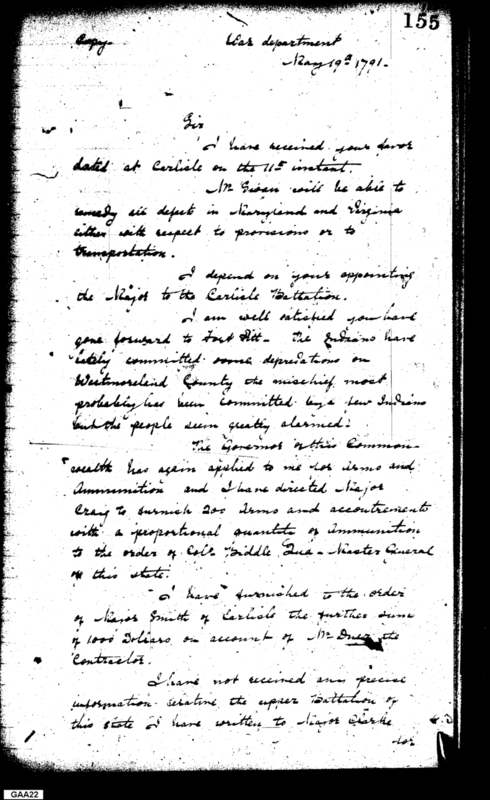 155
Copy.
War department
May 19th 1791.
Sir
I have received your favor
dated at Carlisle on the 11th instant.
Mr Gwan will be able to
remedy all defect in Maryland and Virginia
either with respect to provisions or to
transportation.
I depend on your appointing
the Major to the Carlisle Battalion.
I am well satisfied you have
gone forward to Fort Pitt - The Indians have
lately committed some depredations on
Westmoreland County the mischief most
probably has been committed by a few Indians
but the people seem greatly alarmed.
The Governor of this Common-
wealth has again applied to me for Arms and
Ammunition and I have directed Major
Craig to furnish 200 Arms and accoutrements
with a proportional quantity of Ammunition
to the order of Colo Biddle Qua-Master General
of this state.
I have furnished to the order
of Major Smith of Carlisle the further sum
of 1000 Dollars on account of Mr Duer the
Contractor.
I have not received any precise
information relative the upper Battalion of
this state I have written to Major Clarke
for
GAA22